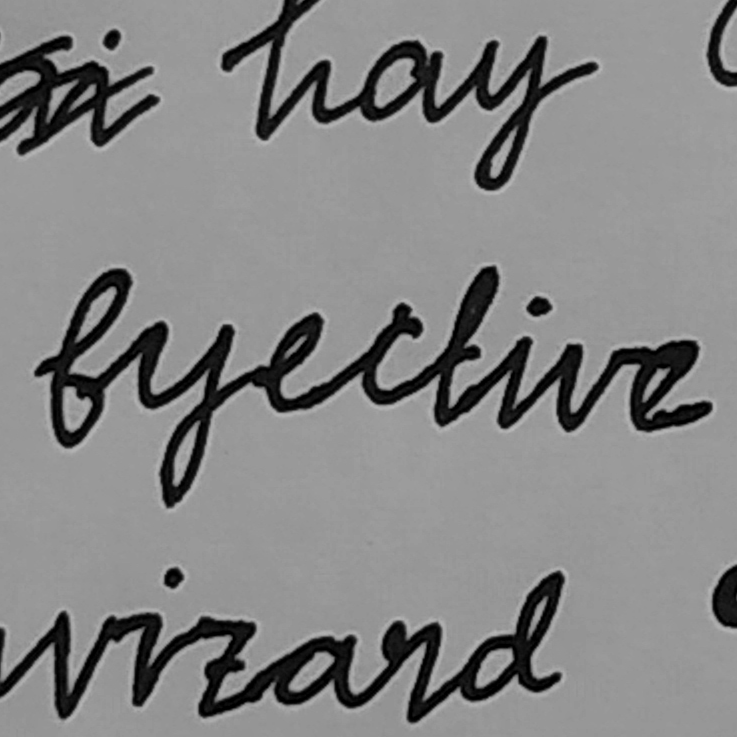 hay
byective
wizard